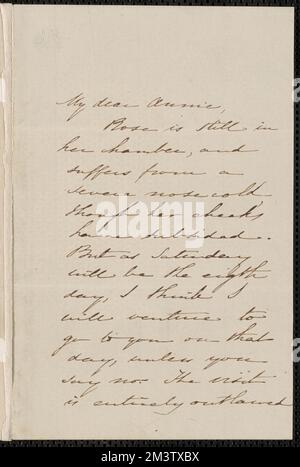 My dear Annie,
Rose is still in
her chamber, and
suffers from a
severe nose cold
though her cheeks
have subsided.
But as Saturday
will be the eighth
day, I think I
will venture to
go to you on that
day, unless you
say no. The visit
is entirely outlawed
alamy
Image ID: 2M3TXBX
www.alamy.com